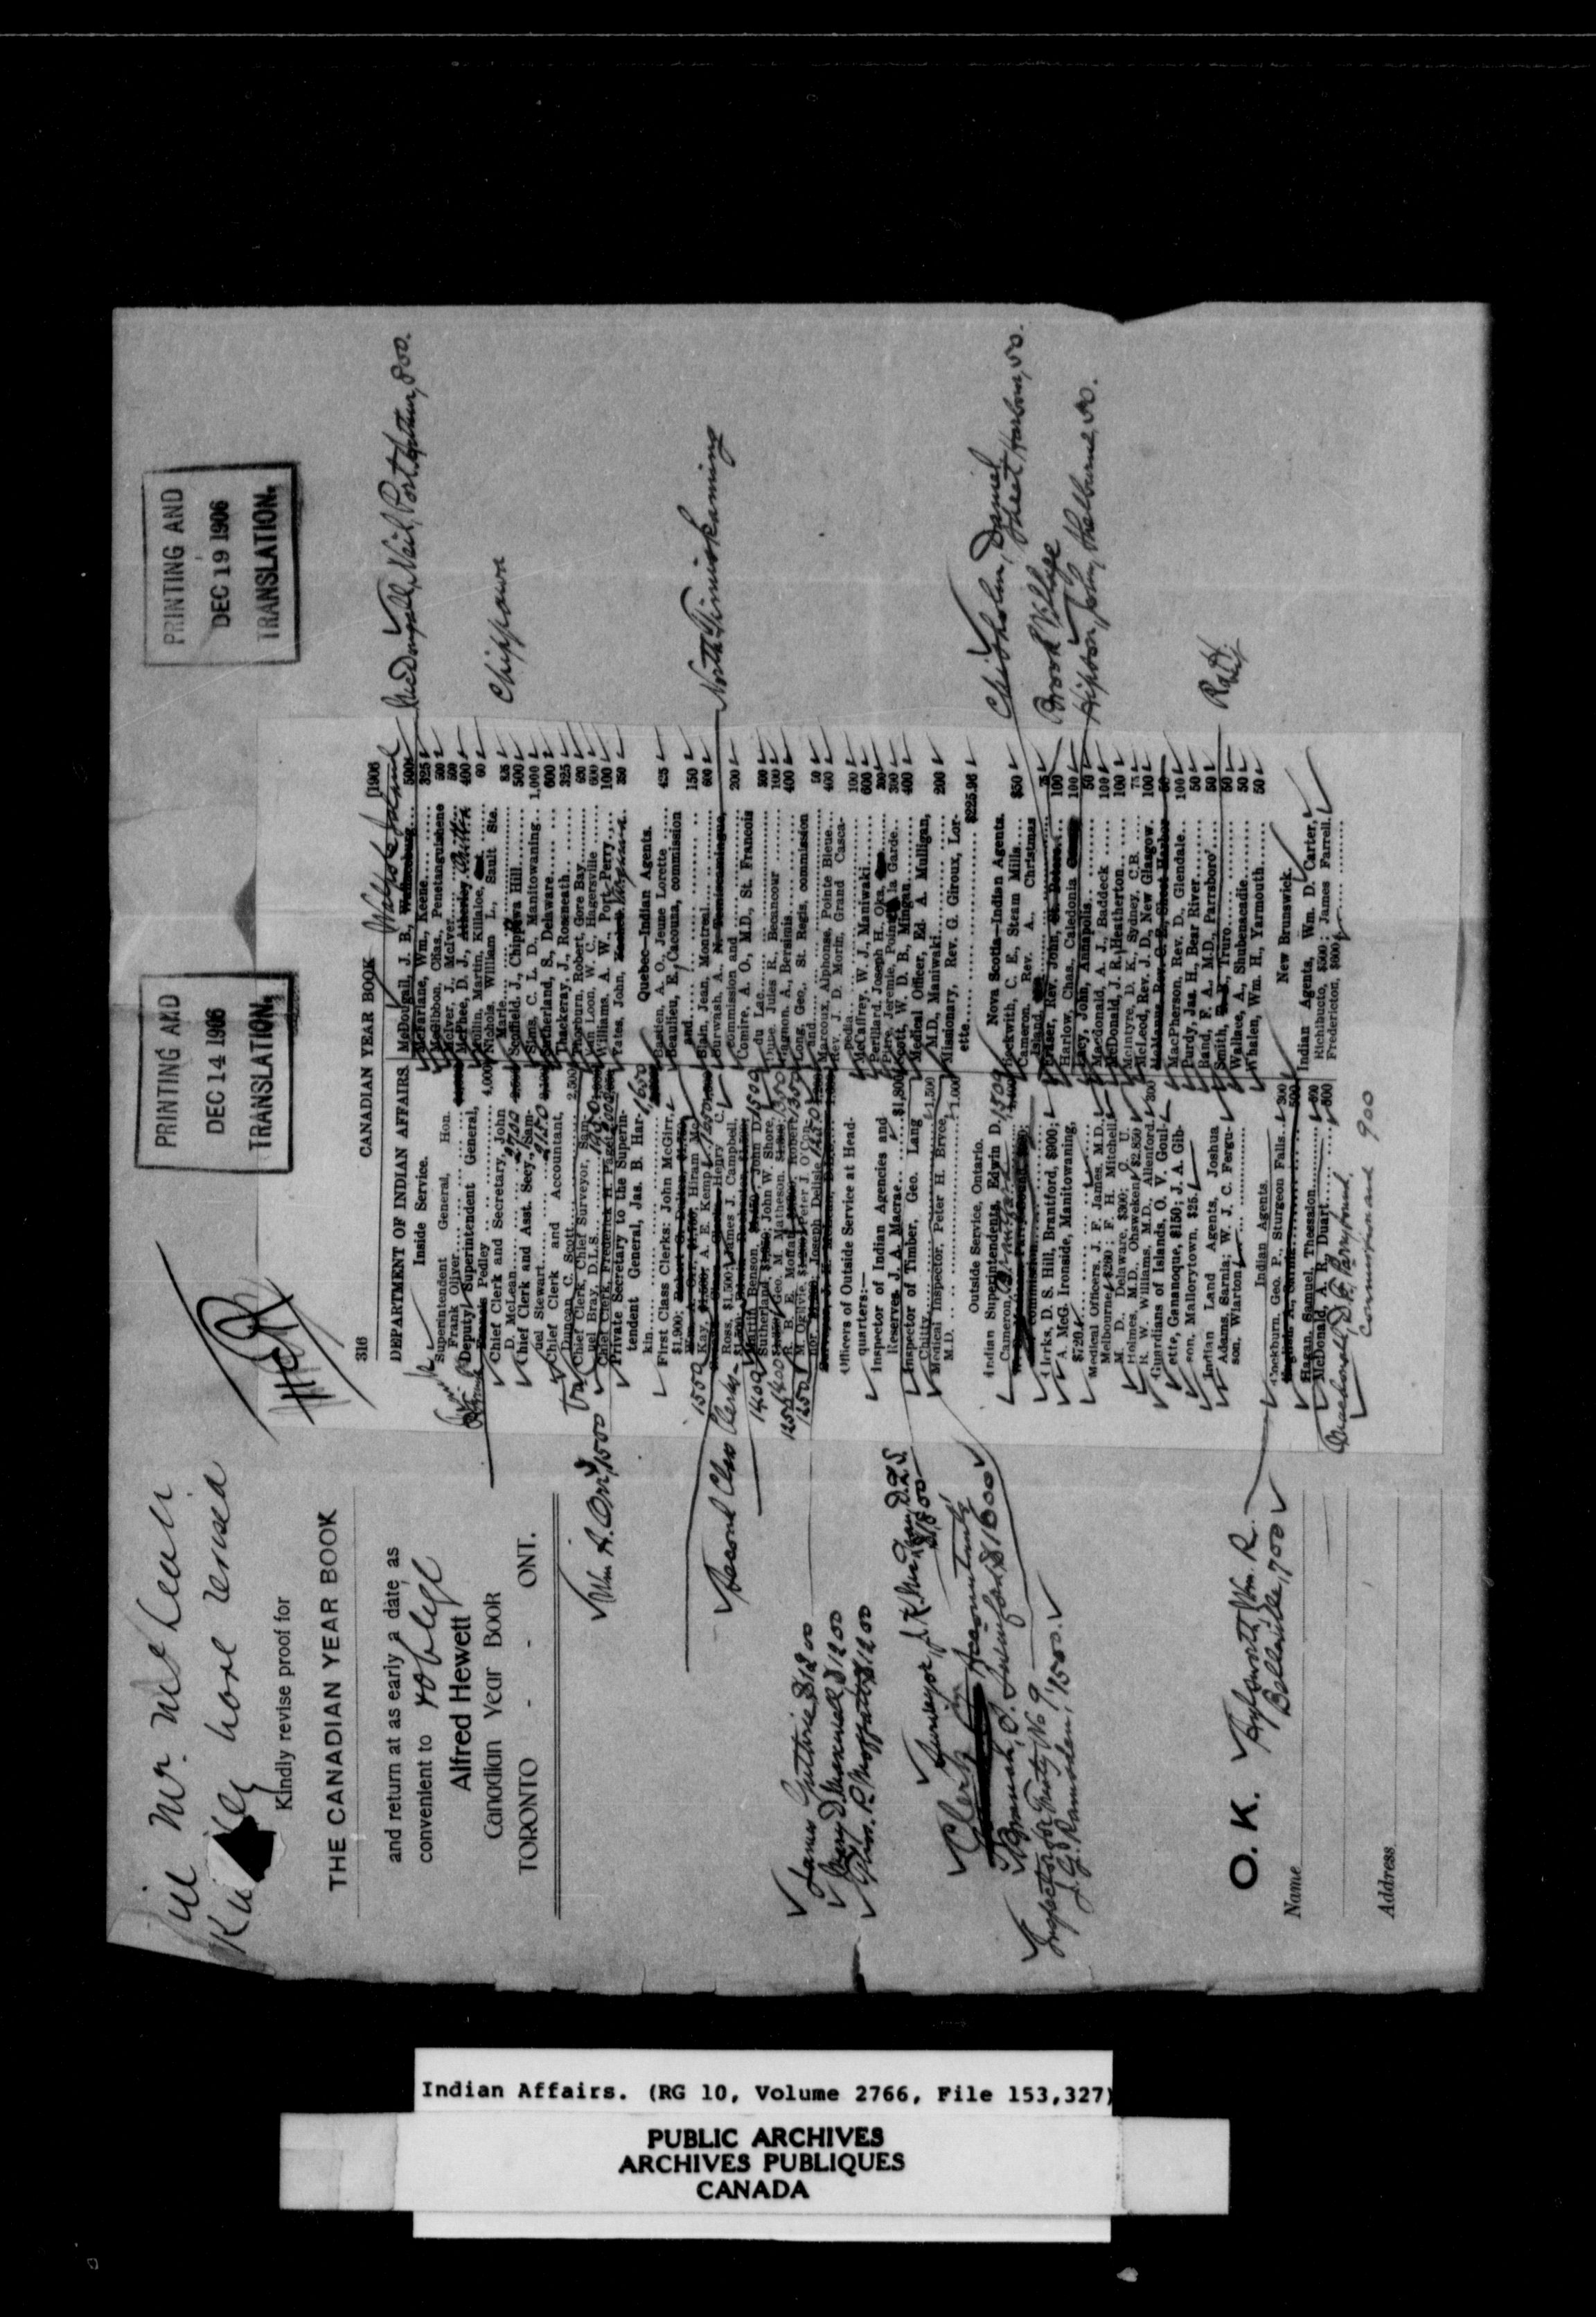 Mr. McLean
Kindly have revised
Kindly revise proof for
THE CANADIAN YEAR BOOK
and return at as early a date as
convenient to
Alfred Hewett
Canadian Year Book
TORONTO - - ONT.
PRINTING AND
DEC 14 1906
TRANSLATION.
PRINTING AND
DEC 19 1906
TRANSLATION.
316 CANADIAN YEAR BOOK [1906
DEPARTMENT OF INDIAN AFFAIRS.
Inside Service.
Superintendent General, Hon.
Frank Oliver
Deputy Superintendent General,
Pedley 4,000
Chief Clerk and Secretary, John
D. McLean 2700
Chief Clerk and Asst. Secy., Sam-
uel Stewart 2150
Chief Clerk and Accountant,
Duncan C. Scott 2,500
Chief Clerk, Chief Surveyor, Sam-
uel Bray, D.L.S.
Chief Clerk, Frederick H. Paget
Private Secretary to the Superin-
tendent General, Jas. B. Har-
kin
First Class Clerks: John McGirr
$1,900;
Hiram Mc
Kay, A. E. Kemp 1650
Henry C.
Ross, $1,500; James J. Campbell,
Martin Benson, John D. 1500
Sutherland, John W. Shore,
1400 Geo. M. Matheson,
R. B. E. Moffat, Robert 1350
M. Ogilvie, Peter J. O'Con-
nor, Joseph Delisle
Officers of Outside Service at Head-
quarters:—
Inspector of Indian Agencies and
Reserves J. A. Macrae $1,800
Inspector of Timber, Geo. Lang
Chitty 1,500
Medical Inspector, Peter H. Bryce,
M.D. 1,000
Outside Service, Ontario.
Indian Superintendents, Edwin D.
Cameron, Brantford 1500
Clerks, D. S. Hill, Brantford, $900;
A. McG. Ironside, Manitowaning,
$720
Medical Officers, J. F. James, M.D.,
Melbourne, $280; F. H. Mitchell,
M. D., Delaware, $300; U.
Holmes, M.D., Ohsweken, $2,850
R. W. Williams, M.D., Allenford 300
Guardians of Islands, O. V. Goul-
ette, Gananoque, $150; J. A. Gib-
son, Mallorytown, $25.
Indian Land Agents, Joshua
Adams, Sarnia; W. J. C. Fergu-
son, Wiarton
Indian Agents
Cockburn, Geo. P., Sturgeon Falls 300
Hagan, Samuel, Thessalon 600
McDonald, A. R., Duart 600
Commission and 900
McDougall, J. B., 500
McFarlane, Wm., Keene 325
McGibbon, Chas., Penetanguishene 500
McIver, J., McIver 500
McPhee, D. J., Atherley 400
Mullin, Martin, Killaloe 60
Nichols, William L., Sault Ste.
Marie
Scoffield, J., Chippawa Hill 500
Sims, C. L. D., Manitowaning 1,000
Sutherland, S., Delaware 600
Thackeray, J., Roseneath 325
Thorburn, Robert, Gore Bay 600
Van Loon, W. C., Hagersville 600
Williams, A. W., Port Perry 100
Yates, John, 350
Quebec—Indian Agents.
Bastien, A. O., Jeune Lorette 425
Beaulieu, E., Cacouna, commission
and 150
Blain, Jean, Montreal 600
Burwash, A., N. Temiscamingue,
commission and 200
Comire, A. O., M.D., St. Francois
du Lac 300
Dube, Jules R., Becancour 100
Gagnon, A., Bersimis 400
Long, Geo., St. Regis, commission
and 50
Marcoux, Alphonse, Pointe Bleue 400
Rev. J. D. Morin, Grand Casca-
pedia 100
McCaffrey, W. J., Maniwaki 600
Perillard, Joseph H., Oka
Pitre, Jeremie, Pointe a la Garde 300
Scott, W. D. B., Mingan 400
Medical Officer, Ed. A. Mulligan,
M.D., Maniwaki 200
Missionary, Rev. G. Giroux, Lor-
ette $225.96
Nova Scotia—Indian Agents.
Beckwith, C. E., Steam Mills $50
Cameron, Rev. A., Christmas
Island 75
Fraser, Rev. John, 100
Harlow, Chas., Caledonia 100
Lacy, John, Annapolis 50
Macdonald, A. J., Baddeck 100
McDonald, J. R., Heatherton 100
McIntyre, D. K., Sydney, C.B. 75
McLeod, Rev. J. D., New Glasgow 100
MacPherson, Rev. D., Glendale 100
Purdy, Jas. H., Bear River 50
Rand, F. A., M.D., Parrsboro' 50
Smith, Truro 50
Wallace, A., Shubenacadie 50
Whalen, Wm. H., Yarmouth 50
New Brunswick.
Indian Agents, Wm. D. Carter,
Richibucto, $500; James Farrell,
Fredericton, $600
McDougall, Neil, Port Arthur, 800.
Chippawa
North Timiskaming
Chisholm, Daniel,
Sheet Harbour, 50.
Brook Village
Hipson, John, Shelburne, 50.
Wm. A. Orr, 1500
Second Class Clerks
James Guthrie $1200
Mary D. Maxwell $1200
Thos. R. Moffatt $1200
Surveyor, J. K. McLean, D.L.S.
$1800
Clerk in Accountant's
Branch, $1600
Inspector for Treaty No 9
J. G. Ramsden, 1500.
Aylsworth, Wm. R.
Belleville, 700
O. K.
Name
Address
Indian Affairs. (RG 10, Volume 2766, File 153,327)
PUBLIC ARCHIVES
ARCHIVES PUBLIQUES
CANADA